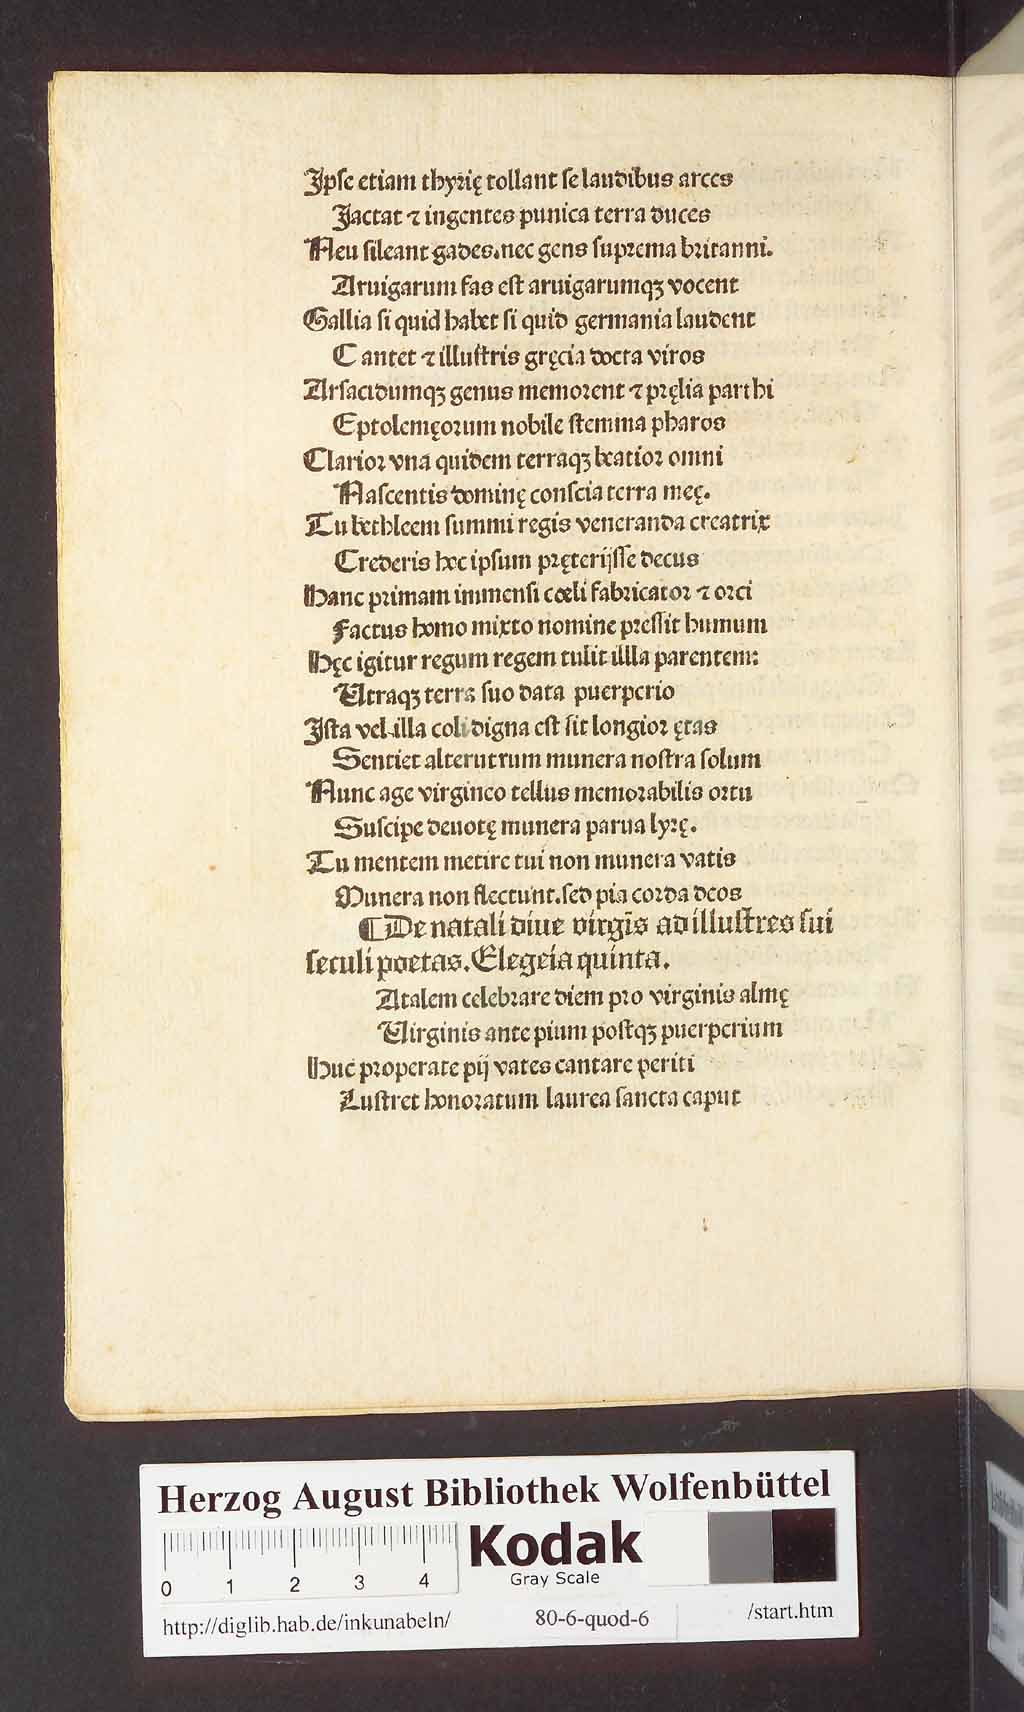 Ipſe etiam thyrię tollant ſe laudibus arces
Jactat ⁊ ingentes punica terra duces
Neu ſileant gades.nec gens ſuprema britanni.
Aruigarum fas eſt aruigarumqꝫ vocent
Gallia ſi quid habet ſi quid germania laudent
Cantet ⁊ illuſtris gręcia docta viros
Arſacidumqꝫ genus memorent ⁊ pręlia parthi
Eptolemęorum nobile ſtemma pharos
Clarior vna quidem terraqꝫ beatior omni
Naſcentis dominę conſcia terra meę.
Tu bethleem ſummi regis veneranda creatrix
Crederis hoc ipſum pręterijſſe decus
Hanc primam immenſi cœli fabricator ⁊ orci
Factus homo mixto nomine preſſit humum
Hęc igitur regum regem tulit illla parentem:
Utraqꝫ terra ſuo data puerperio
Iſta vel illa coli digna eſt ſit longior ętas
Sentiet alterutrum munera noſtra ſolum
Nunc age virgineo tellus memorabilis ortu
Suſcipe deuotę munera parua lyrę.
Tu mentem metire tui non munera vatis
Munera non flectunt.ſed pia corda deos
¶De natali diue virgīs ad illuſtres ſui
ſeculi poetas.Elegeia quinta.
Atalem celebrare diem pro virginis almę
Uirginis ante pium poſtqꝫ puerperium
Huc properate pij vates cantare periti
Luſtret honoratum laurea ſancta caput
Herzog August Bibliothek Wolfenbüttel
Kodak
Gray Scale
0 1 2 3 4
http://diglib.hab.de/inkunabeln/ 80-6-quod-6 /start.htm